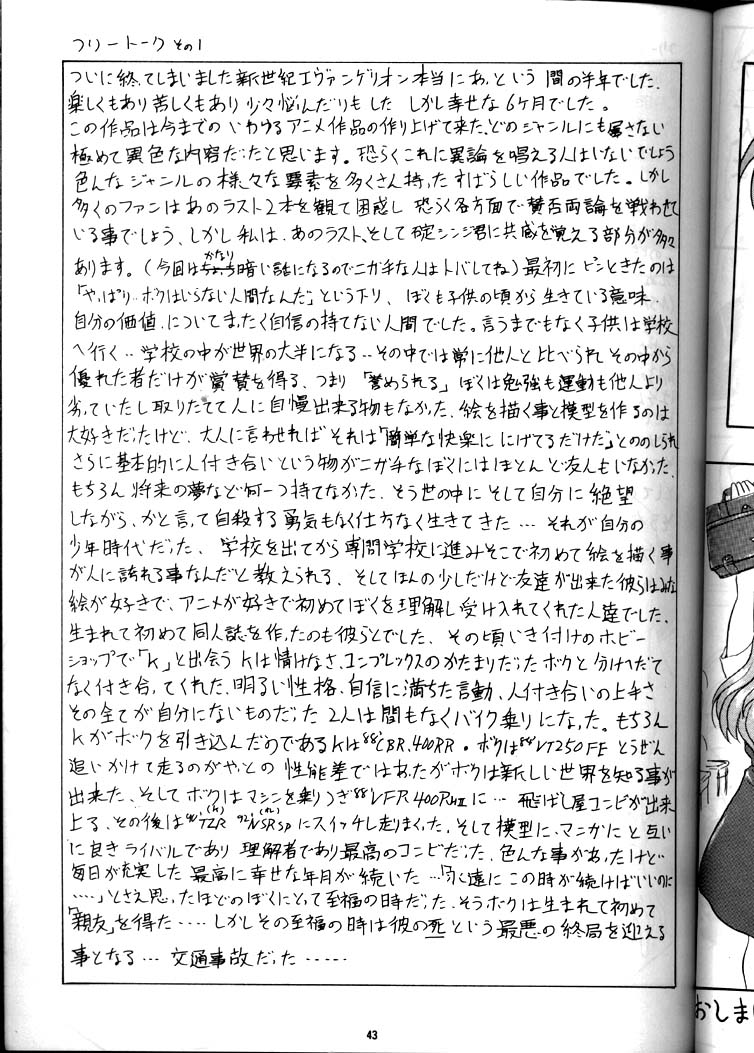 フリートーク その1
ついに終ってしまいました新世紀エヴァンゲリオン本当にあっという間の半年でした、
楽しくもあり苦しくもあり少々悩んだりもした しかし幸せな6ケ月でした。
この作品は今までのいわゆるアニメ作品の作り上げて来た、どのジャンルにも属さない
極めて異色な内容だったと思います。恐らくこれに異論を唱える人はいないでしょう
色んなジャンルの様々な要素を多くさん持ったすばらしい作品でした。しかし
多くのファンはあのラスト2本を観て困惑し 恐らく各方面で賛否両論を戦わせて
いる事でしょう、しかし私は、あのラスト、そして碇シンジ君に共感を覚える部分が多々
あります。(今回はかなり暗い話になるのでニガ手な人はトバしてね)最初にピンときたのは
「やっぱりボクはいらない人間なんだ」という下り、ぼくも子供の頃から生きている意味、
自分の価値、についてまったく自信の持てない人間でした。言うまでもなく子供は学校
へ行く‥学校の中が世界の大半になる‥その中では常に他人と比べられその中から
優れた者だけが賞賛を得る、つまり「誉められる」ぼくは勉強も運動も他人より
劣っていたし取りたてて人に自慢出来る物もなかった、絵を描く事と模型を作るのは
大好きだったけど、大人に言わせればそれは「簡単な快楽ににげてるだけだ」とののしられ
さらに基本的に人付き合いという物がニガ手なぼくにはほとんど友人もいなかった、
もちろん将来の夢など何一つ持てなかった、そう世の中にそして自分に絶望
しながら、かと言って自殺する勇気もなく仕方なく生きてきた…それが自分の
少年時代だった、学校を出てから専門学校に進みそこで初めて絵を描く事
が人に誇れる事なんだと教えられる、そしてほんの少しだけど友達が出来た彼らはみな
絵が好きで、アニメが好きで初めてぼくを理解し受け入れてくれた人達でした、
生まれて初めて同人誌を作ったのも彼らとでした、その頃いき付けのホビー
ショップで「K」と出会う Kは情けなさ、コンプレックスのかたまりだったボクと分けへだて
なく付き合ってくれた、明るい性格、自信に満ちた言動、人付き合いの上手さ
その全てが自分にないものだった 2人は間もなくバイク乗りになった。もちろん
Kがボクを引き込んだのであるKは'88CBR400RR。ボクは'88VT250FE とうぜん
追いかけて走るのがやっとの性能差ではあったがボクは新しい世界を知る事が
出来た、そしてボクはマシンを乗りつぎ'88VFR400RⅡに…飛ばし屋コンビが出来
上る、その後は'91TZR(K) '92NSRSP(ボク)にスイッチし走りまくった、そして模型に、マニかにと互い
に良きライバルであり理解者であり最高のコンビだった、色んな事があったけど
毎日が充実した 最高に幸せな年月が続いた…「永遠にこの時が続けばいいのに
……」とさえ思ったほどのぼくにとって至福の時だった、そうボクは生まれて初めて
「親友」を得た……しかしその至福の時は彼の死という最悪の終局を迎える
事となる… 交通事故だった……
43
おしまい